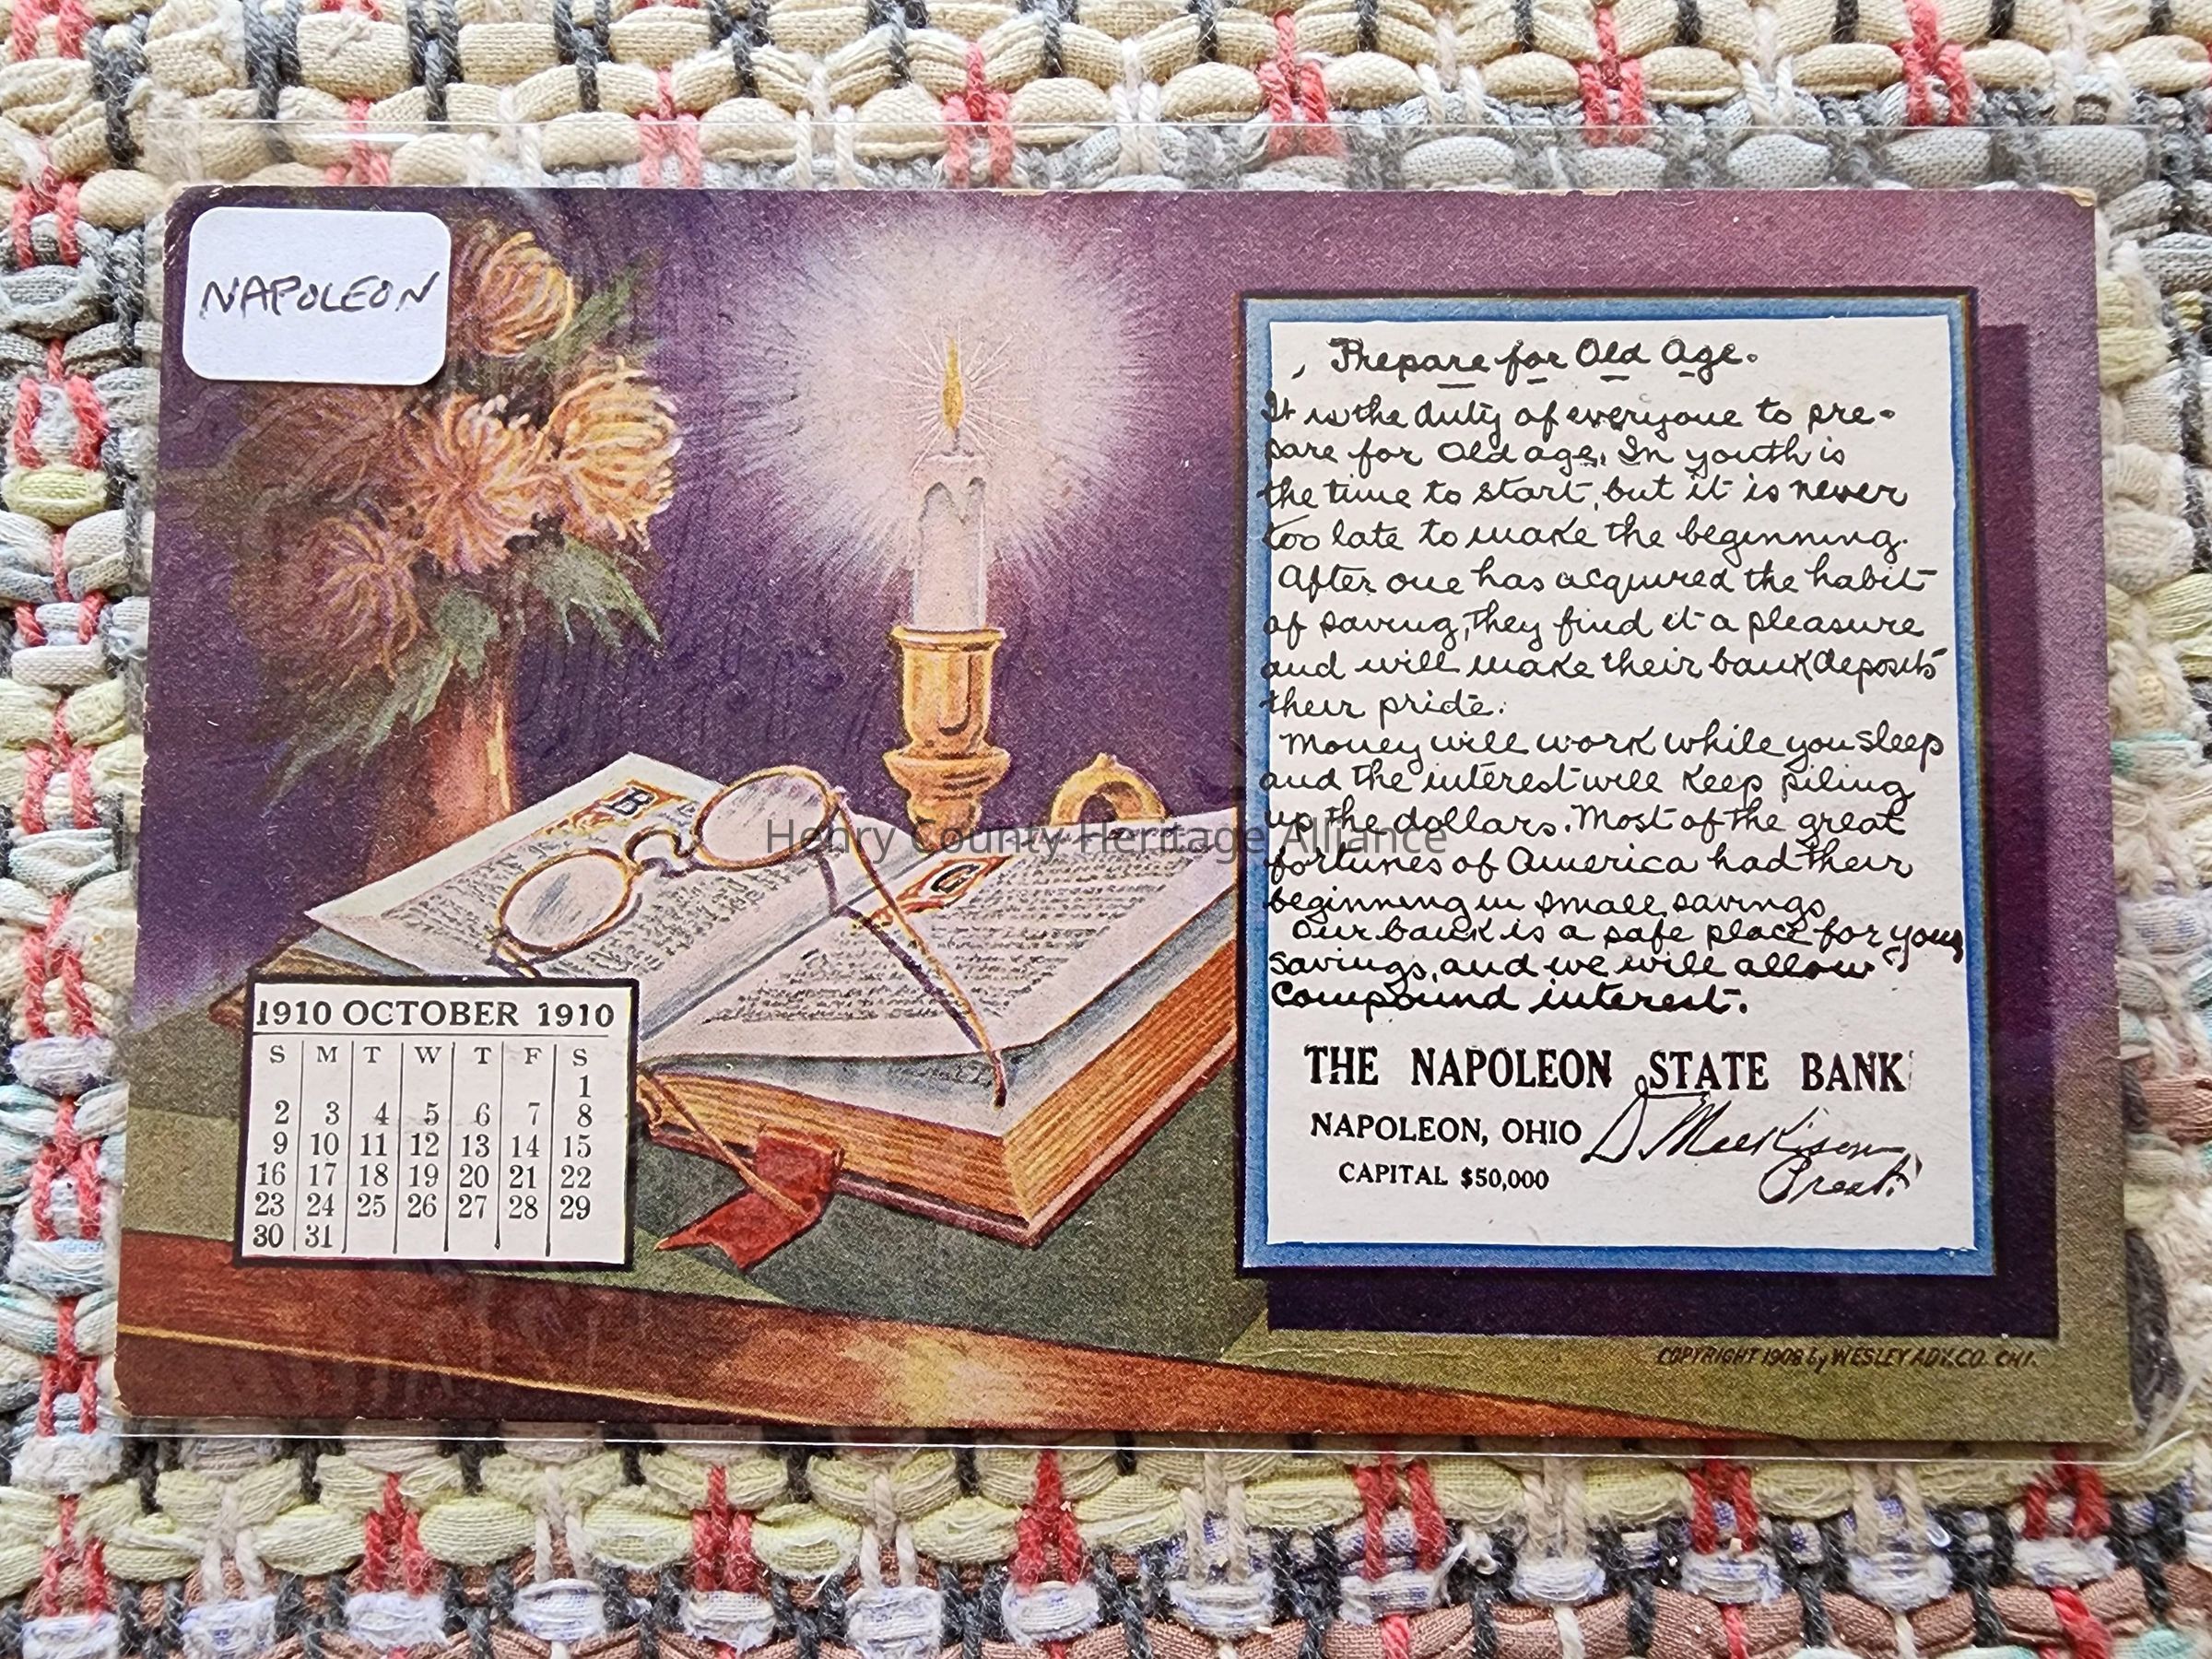 NAPOLEON
Prepare for Old Age.
It is the duty of everyone to pre-
pare for Old age. In youth is
the time to start, but it is never
too late to make the beginning.
After one has acquired the habit
of saving, they find it a pleasure
and will make their bank deposits
their pride.
Money will work while you sleep
and the interest will keep piling
up the dollars. Most of the great
fortunes of America had their
beginning in small savings
Our bank is a safe place for your
savings, and we will allow
compound interest.
THE NAPOLEON STATE BANK
NAPOLEON, OHIO
D Meekison
Prest.
CAPITAL $50,000
B
G
Henry County Heritage Alliance
1910 OCTOBER 1910
S M T W T F S
1
2 3 4 5 6 7 8
9 10 11 12 13 14 15
16 17 18 19 20 21 22
23 24 25 26 27 28 29
30 31
COPYRIGHT 1908 by WESLEY ADV. CO. CHI.